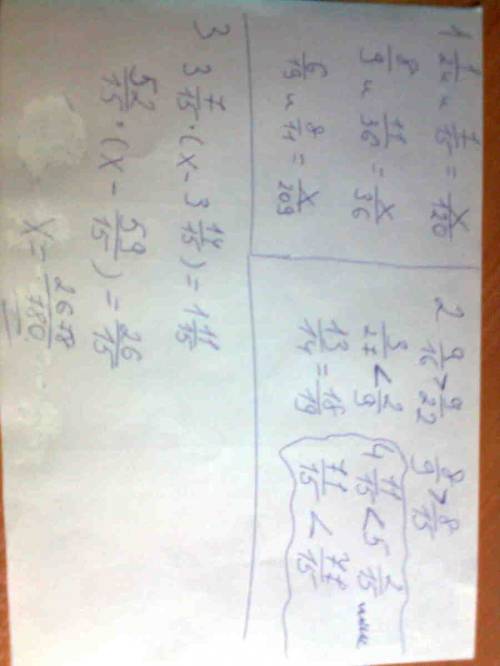 1 1/24 и 1/15 = x/120
8/9 и 11/36 = x/36
6/19 и 8/11 = x/209
2 9/16 > 9/22 8/9 > 8/15
5/27 < 2/9 4 11/15 < 5 2/15 или
13/14 = 18/19 71/15 < 77/15
3 3 7/15 · (x - 3 14/15) = 1 11/15
52/15 · (x - 59/15) = 26/15
x = 2678/780